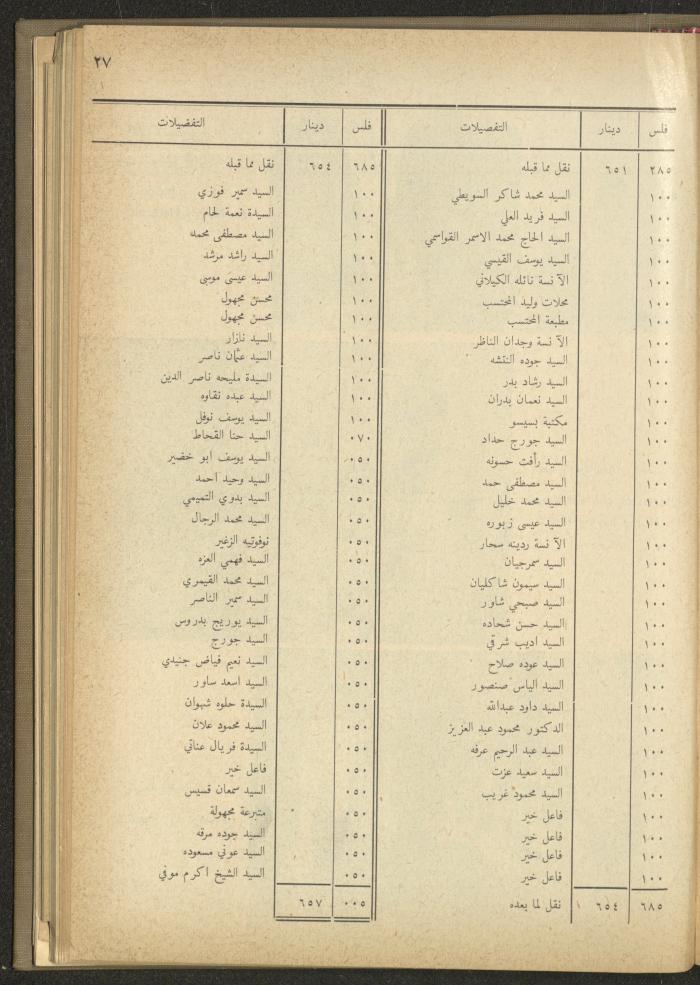 ٢٧
فلس دينار التفصيلات
٢٨٥ ٦٥١ نقل مما قبله
١٠٠ السيد محمد شاكر السويطي
١٠٠ السيد فريد العلي
١٠٠ السيد الحاج محمد الاسمر القواسمي
١٠٠ السيد يوسف القيسي
١٠٠ الآنسة نائله الكيلاني
١٠٠ محلات وليد المحتسب
١٠٠ مطبعة المحتسب
١٠٠ الآنسة وجدان الناظر
١٠٠ السيد جوده النتشه
١٠٠ السيد رشاد بدر
١٠٠ السيد نعمان بدران
١٠٠ مكتبة بسيسو
١٠٠ السيد جورج حداد
١٠٠ السيد رأفت حسونه
١٠٠ السيد مصطفى حمد
١٠٠ السيد محمد خليل
١٠٠ السيد عيسى زبوره
١٠٠ الآنسة ردينه سحار
١٠٠ السيد سمرجيان
١٠٠ السيد سيمون شاكليان
١٠٠ السيد صبحي شاور
١٠٠ السيد حسن شحاده
١٠٠ السيد اديب شرقي
١٠٠ السيد عوده صلاح
١٠٠ السيد الياس صنصور
١٠٠ السيد داود عبدالله
١٠٠ الدكتور محمود عبد العزيز
١٠٠ السيد عبد الرحيم عرفه
١٠٠ السيد سعيد عزت
١٠٠ السيد محمود غريب
١٠٠ فاعل خير
١٠٠ فاعل خير
١٠٠ فاعل خير
١٠٠ فاعل خير
٦٨٥ ٦٥٤ نقل لما بعده
فلس دينار التفصيلات
٦٨٥ ٦٥٤ نقل مما قبله
١٠٠ السيد سمير فوزي
١٠٠ السيدة نعمة لحام
١٠٠ السيد مصطفى محمد
١٠٠ السيد راشد مرشد
١٠٠ السيد عيسى موسى
١٠٠ محسن مجهول
١٠٠ محسن مجهول
١٠٠ السيد نازار
١٠٠ السيد عثمان ناصر
١٠٠ السيدة مليحه ناصر الدين
١٠٠ السيد عبده نقاوه
١٠٠ السيد يوسف نوفل
٠٧٠ السيد حنا القحاط
٠٥٠ السيد يوسف ابو خضير
٠٥٠ السيد وحيد احمد
٠٥٠ السيد بدوي التميمي
٠٥٠ السيد محمد الرجال
٠٥٠ نوفوتيه الزغير
٠٥٠ السيد فهمي العزه
٠٥٠ السيد محمد القيمري
٠٥٠ السيد سمير الناصر
٠٥٠ السيد يوريج بدروس
٠٥٠ السيد جورج
٠٥٠ السيد نعيم فياض جنيدي
٠٥٠ السيد اسعد ساور
٠٥٠ السيدة حلوه شهوان
٠٥٠ السيد محمود علان
٠٥٠ السيدة فريال عناتي
٠٥٠ فاعل خير
٠٥٠ السيد سمعان قسيس
٠٥٠ متبرعة مجهولة
٠٥٠ السيد جوده مرقه
٠٥٠ السيد عوني مسعوده
٠٥٠ السيد الشيخ اكرم موفي
٠٠٥ ٦٥٧